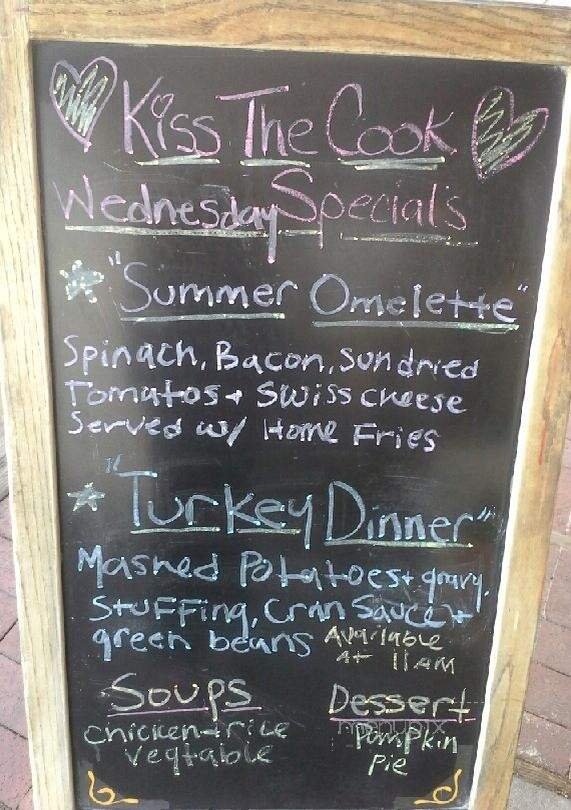 Kiss The Cook
Wednesday Specials
"Summer Omelette"
Spinach, Bacon, sundried
Tomatos + Swiss cheese
Served w/ Home Fries
"Turkey Dinner"
Mashed Potatoes + gravy,
Stuffing, Cran Sauce +
green beans Available
At 11 AM
Soups Dessert
chicken + rice Pumpkin
Vegtable Pie
menupix